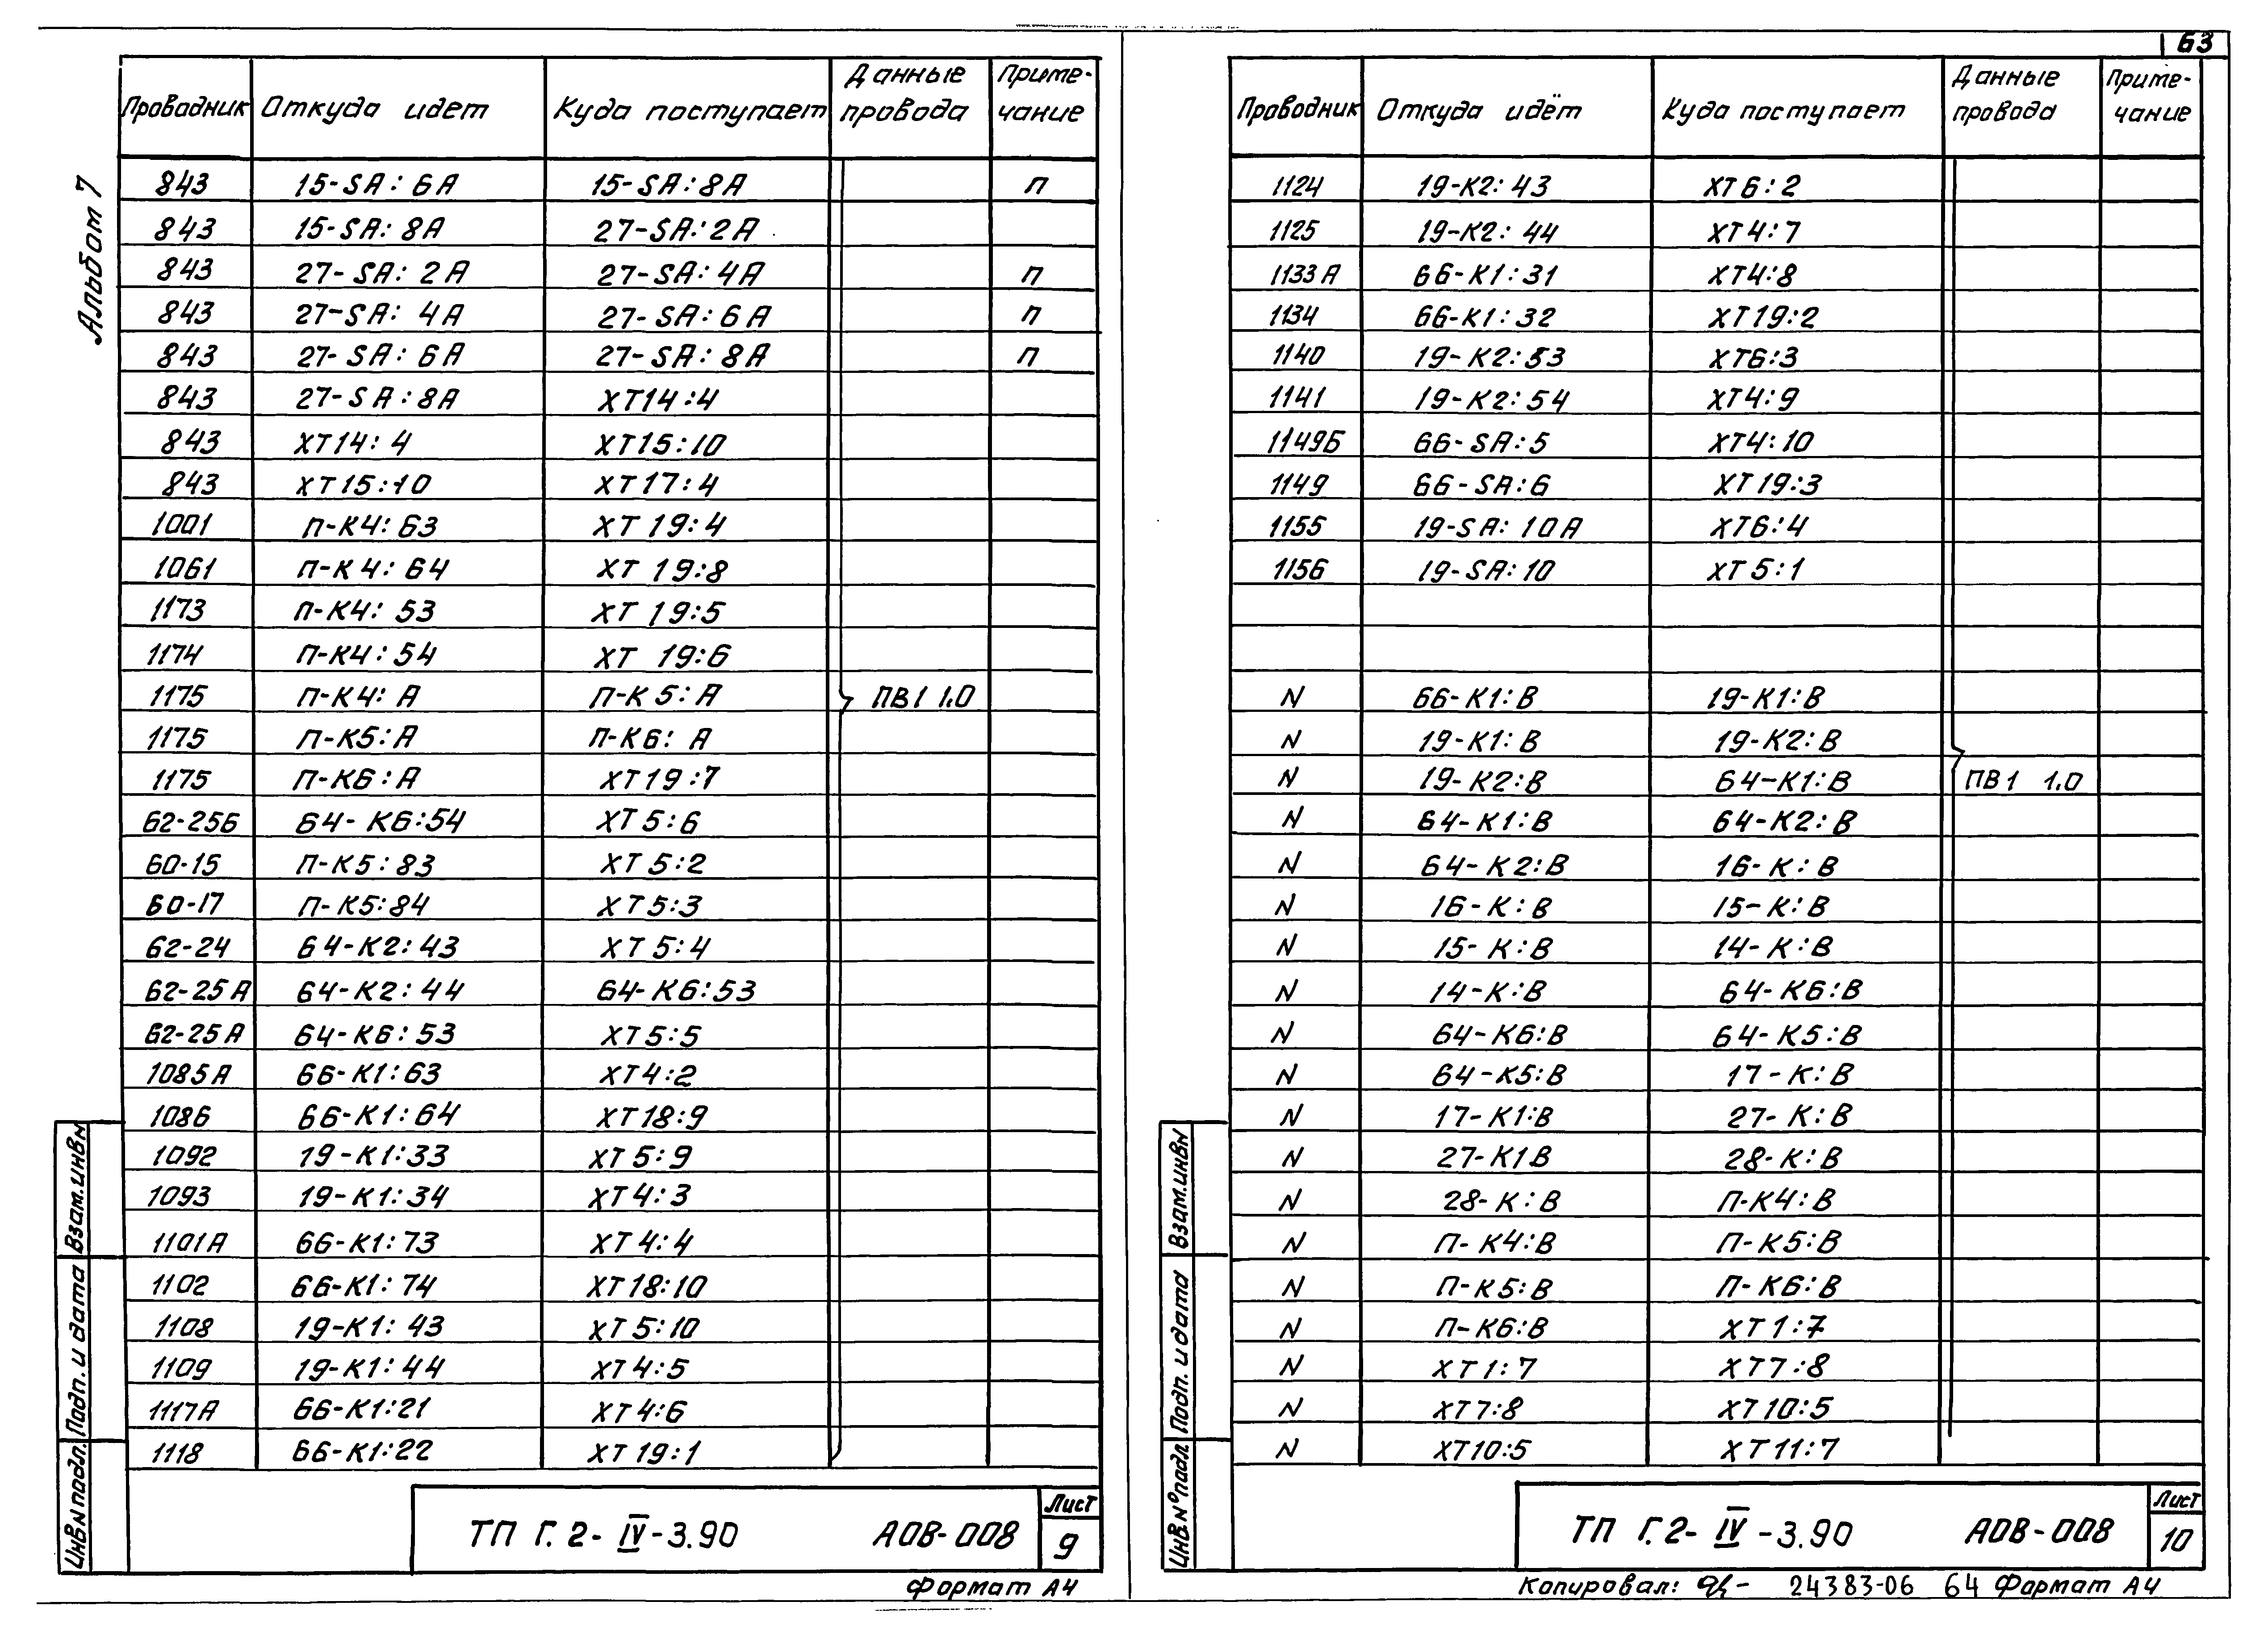 63
Альбом 7
Проводник Откуда идет Куда поступает Данные провода Примечание
843 15-SA: 6A 15-SA: 8A п
843 15-SA: 8A 27-SA: 2A
843 27-SA: 2A 27-SA: 4A п
843 27-SA: 4A 27-SA: 6A п
843 27-SA: 6A 27-SA: 8A п
843 27-SA: 8A XT14:4
843 XT14: 4 XT15:10
843 XT15:10 XT17:4
1001 П-К4: 63 XT 19:4
1061 П-К4: 64 XT 19:8
1173 П-К4: 53 XT 19:5
1174 П-К4: 54 XT 19:6
1175 П-К4: A П-К5: A ПВ1 1.0
1175 П-К5: A П-К6: A
1175 П-К6: A XT19:7
62-25Б 64-К6:54 XT5:6
60-15 П-К5: 83 XT5:2
60-17 П-К5:84 XT5:3
62-24 64-К2: 43 XT5:4
62-25А 64-К2: 44 64-К6:53
62-25А 64-К6: 53 XT5:5
1085А 66-К1: 63 XT4:2
1086 66-К1: 64 XT18:9
1092 19-К1:33 XT5:9
1093 19-К1: 34 XT4:3
1101А 66-К1: 73 XT4:4
1102 66-К1: 74 XT18:10
1108 19-К1: 43 XT5:10
1109 19-К1: 44 XT4:5
1117А 66-К1:21 XT4:6
1118 66-К1:22 XT19:1
Взам.инвN
Подп. и дата
ИнвN подл.
ТП Г.2-IV-3.90 АОВ-008
Лист
9
Формат А4
Проводник Откуда идёт Куда поступает Данные провода Примечание
1124 19-К2: 43 XT6:2
1125 19-К2: 44 XT4:7
1133А 66-К1:31 XT4:8
1134 66-К1: 32 XT19:2
1140 19-К2:53 XT6:3
1141 19-К2:54 XT4:9
1149Б 66-SA:5 XT4:10
1149 66-SA:6 XT19:3
1155 19-SA: 10A XT6:4
1156 19-SA:10 XT5:1
N 66-К1:В 19-К1:В
N 19-К1: В 19-К2:В
N 19-К2:В 64-К1:В ПВ1 1.0
N 64-К1:В 64-К2: В
N 64-К2:В 16-К: В
N 16-К: В 15-К: В
N 15-К:В 14-К:В
N 14-К:В 64-К6:В
N 64-К6:В 64-К5:В
N 64-К5:В 17-К:В
N 17-К1:В 27-К:В
N 27-К1В 28-К:В
N 28-К:В П-К4:В
N П-К4:В П-К5:В
N П-К5:В П-К6:В
N П-К6:В XT1:7
N XT1:7 XT7:8
N XT7:8 XT10:5
N XT10:5 XT11:7
Взам.инвN
Подп. и дата
Инв.N° подл
ТП Г.2-IV-3.90 АОВ-008
Лист
10
Копировал: 24383-06 64 Формат А4